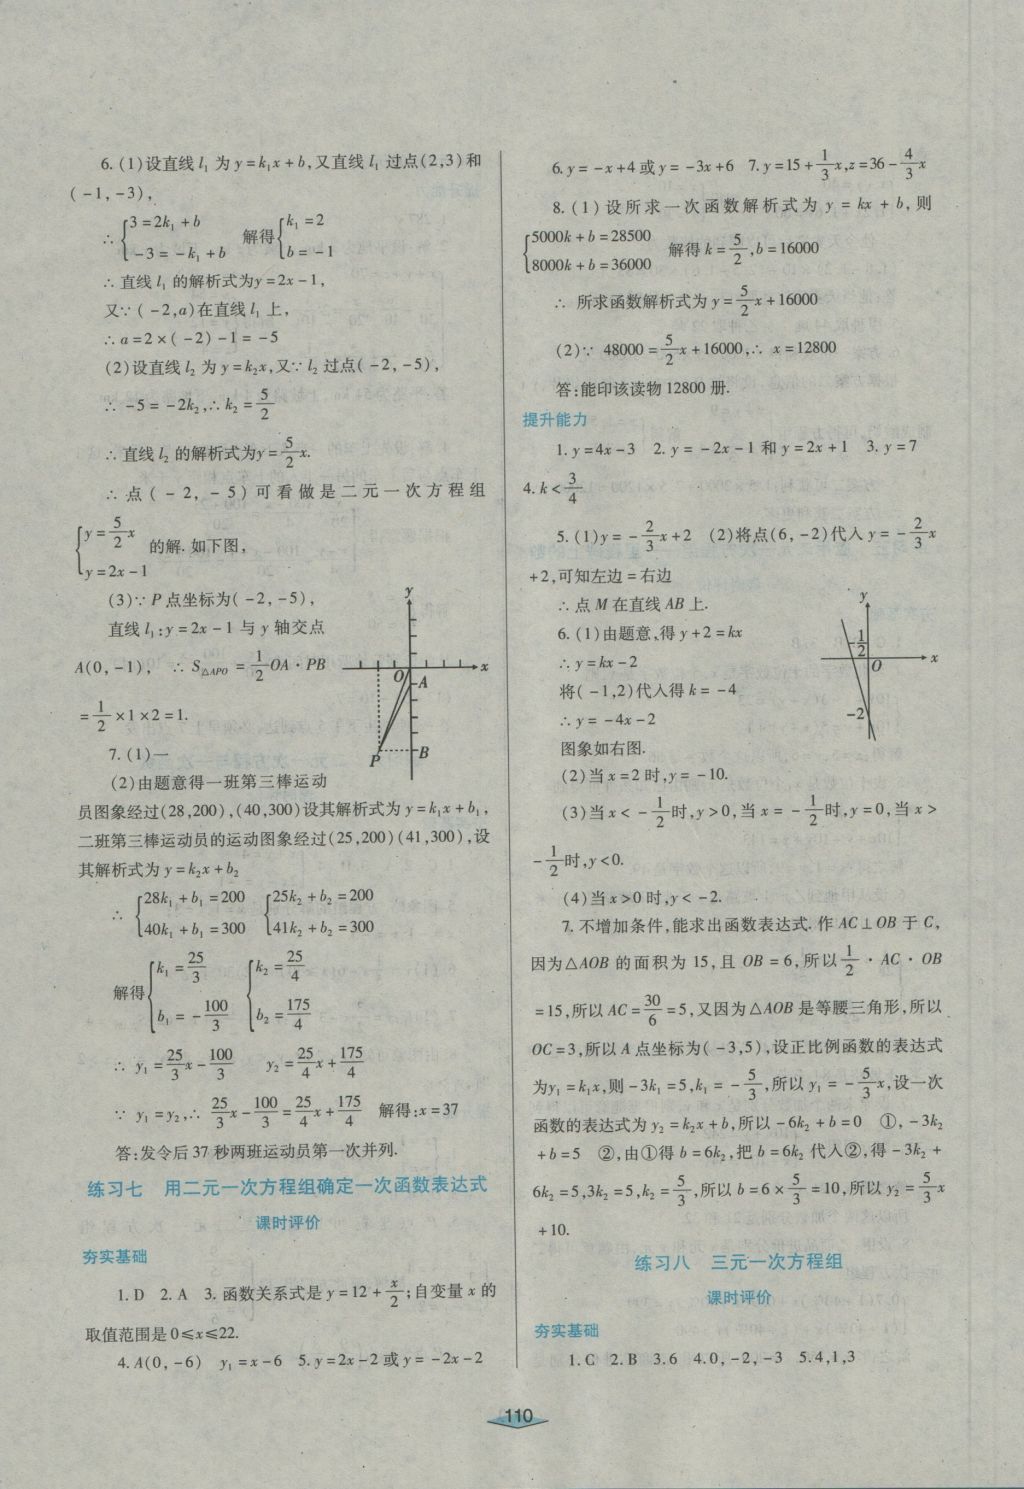 6. (1)设直线 l₁ 为 y=k₁x+b,又直线 l₁ 过点(2,3)和
(-1,-3),
∴ { 3=2k₁+b  -3=-k₁+b 解得 { k₁=2  b=-1
∴ 直线 l₁ 的解析式为y=2x-1,
又∵(-2,a)在直线 l₁ 上,
∴ a=2×(-2)-1=-5
(2)设直线 l₂ 为 y=k₂x,又∵ l₂ 过点(-2,-5),
∴ -5=-2k₂,∴ k₂=5/2
∴ 直线 l₂ 的解析式为y=5/2x.
∴ 点(-2,-5)可看做是二元一次方程组
{ y=5/2x  y=2x-1 的解. 如下图,
(3)∵ P 点坐标为(-2,-5),
直线 l₁:y=2x-1 与 y 轴交点
A(0,-1), ∴ S△APO=1/2OA·PB
=1/2×1×2=1.
y
x
O
A
P
B
7. (1)一
(2)由题意得一班第三棒运动
员图象经过(28,200),(40,300)设其解析式为 y=k₁x+b₁,
二班第三棒运动员的运动图象经过(25,200)(41,300),设
其解析式为 y=k₂x+b₂
∴ { 28k₁+b₁=200  40k₁+b₁=300  { 25k₂+b₂=200  41k₂+b₂=300
解得 { k₁=25/3  b₁=-100/3  { k₂=25/4  b₂=175/4
∴ y₁=25/3x-100/3  y₂=25/4x+175/4
∵ y₁=y₂,∴ 25/3x-100/3=25/4x+175/4 解得:x=37
答:发令后 37 秒两班运动员第一次并列.
练习七 用二元一次方程组确定一次函数表达式
课时评价
夯实基础
1. D 2. A 3. 函数关系式是 y=12+x/2;自变量 x 的
取值范围是 0≤x≤22.
4. A(0,-6) y₁=x-6 5. y=2x-2 或 y=-2x-2
6. y=-x+4 或 y=-3x+6 7. y=15+1/3x,z=36-4/3x
8. (1)设所求一次函数解析式为 y=kx+b,则
{ 5000k+b=28500  8000k+b=36000 解得 k=5/2,b=16000
∴ 所求函数解析式为 y=5/2x+16000
(2)∵ 48000=5/2x+16000,∴ x=12800
答:能印该读物 12800 册.
提升能力
1. y=4x-3 2. y=-2x-1 和 y=2x+1 3. y=7
4. k<3/4
5. (1)y=-2/3x+2 (2)将点(6,-2)代入 y=-2/3x
+2,可知左边=右边
∴ 点 M 在直线 AB 上.
6. (1)由题意,得 y+2=kx
∴ y=kx-2
将(-1,2)代入得 k=-4
∴ y=-4x-2
图象如右图.
y
-1/2
O
x
-2
(2)当 x=2 时,y=-10.
(3)当 x<-1/2时,y>0,当 x=-1/2时,y=0,当 x>
-1/2时,y<0.
(4)当 x>0 时,y<-2.
7. 不增加条件,能求出函数表达式. 作 AC⊥OB 于 C,
因为△AOB 的面积为 15,且 OB=6,所以1/2·AC·OB
=15,所以 AC=30/6=5,又因为△AOB 是等腰三角形,所以
OC=3,所以 A 点坐标为(-3,5),设正比例函数的表达式
为y₁=k₁x,则-3k₁=5,k₁=-5/3,所以 y₁=-5/3x,设一次
函数的表达式为 y₂=k₂x+b,所以-6k₂+b=0 ①,-3k₂
+b=5 ②,由①得 b=6k₂,把 b=6k₂ 代入②,得-3k₂+
6k₂=5,3k₂=5,k₂=5/3,所以 b=6×5/3=10,所以 y₂=5/3x
+10.
练习八 三元一次方程组
课时评价
夯实基础
1. C 2. B 3. 6 4. 0,-2,-3 5. 4,1,3
110